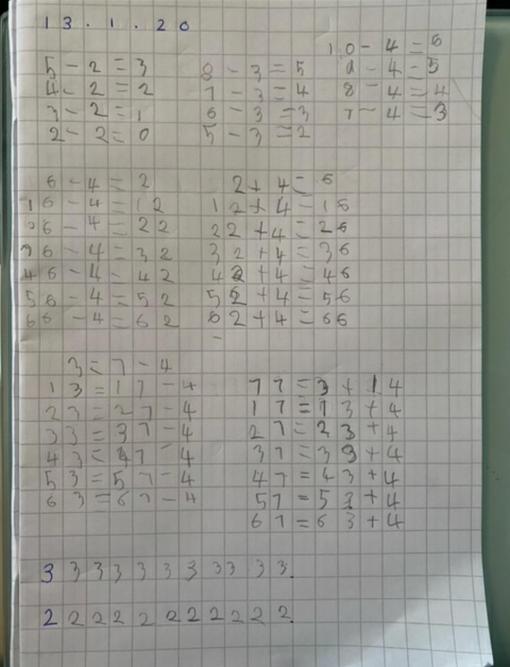 13.1.20
10-4=6
5-2=3 8-3=5 9-4=5
4-2=2 7-3=4 8-4=4
3-2=1 6-3=3 7-4=3
2-2=0 5-3=2
6-4=2 2+4=6
16-4=12 12+4=16
26-4=22 22+4=26
36-4=32 32+4=36
46-4=42 42+4=46
56-4=52 52+4=56
66-4=62 62+4=66
3=7-4
13=17-4 77=3+14
23=27-4 17=13+4
33=37-4 27=23+4
43=47-4 37=33+4
53=57-4 47=43+4
63=67-4 57=53+4
67=63+4
3 3 3 3 3 3 3 3 3 3 3.
2 2 2 2 2 2 2 2 2 2 2.